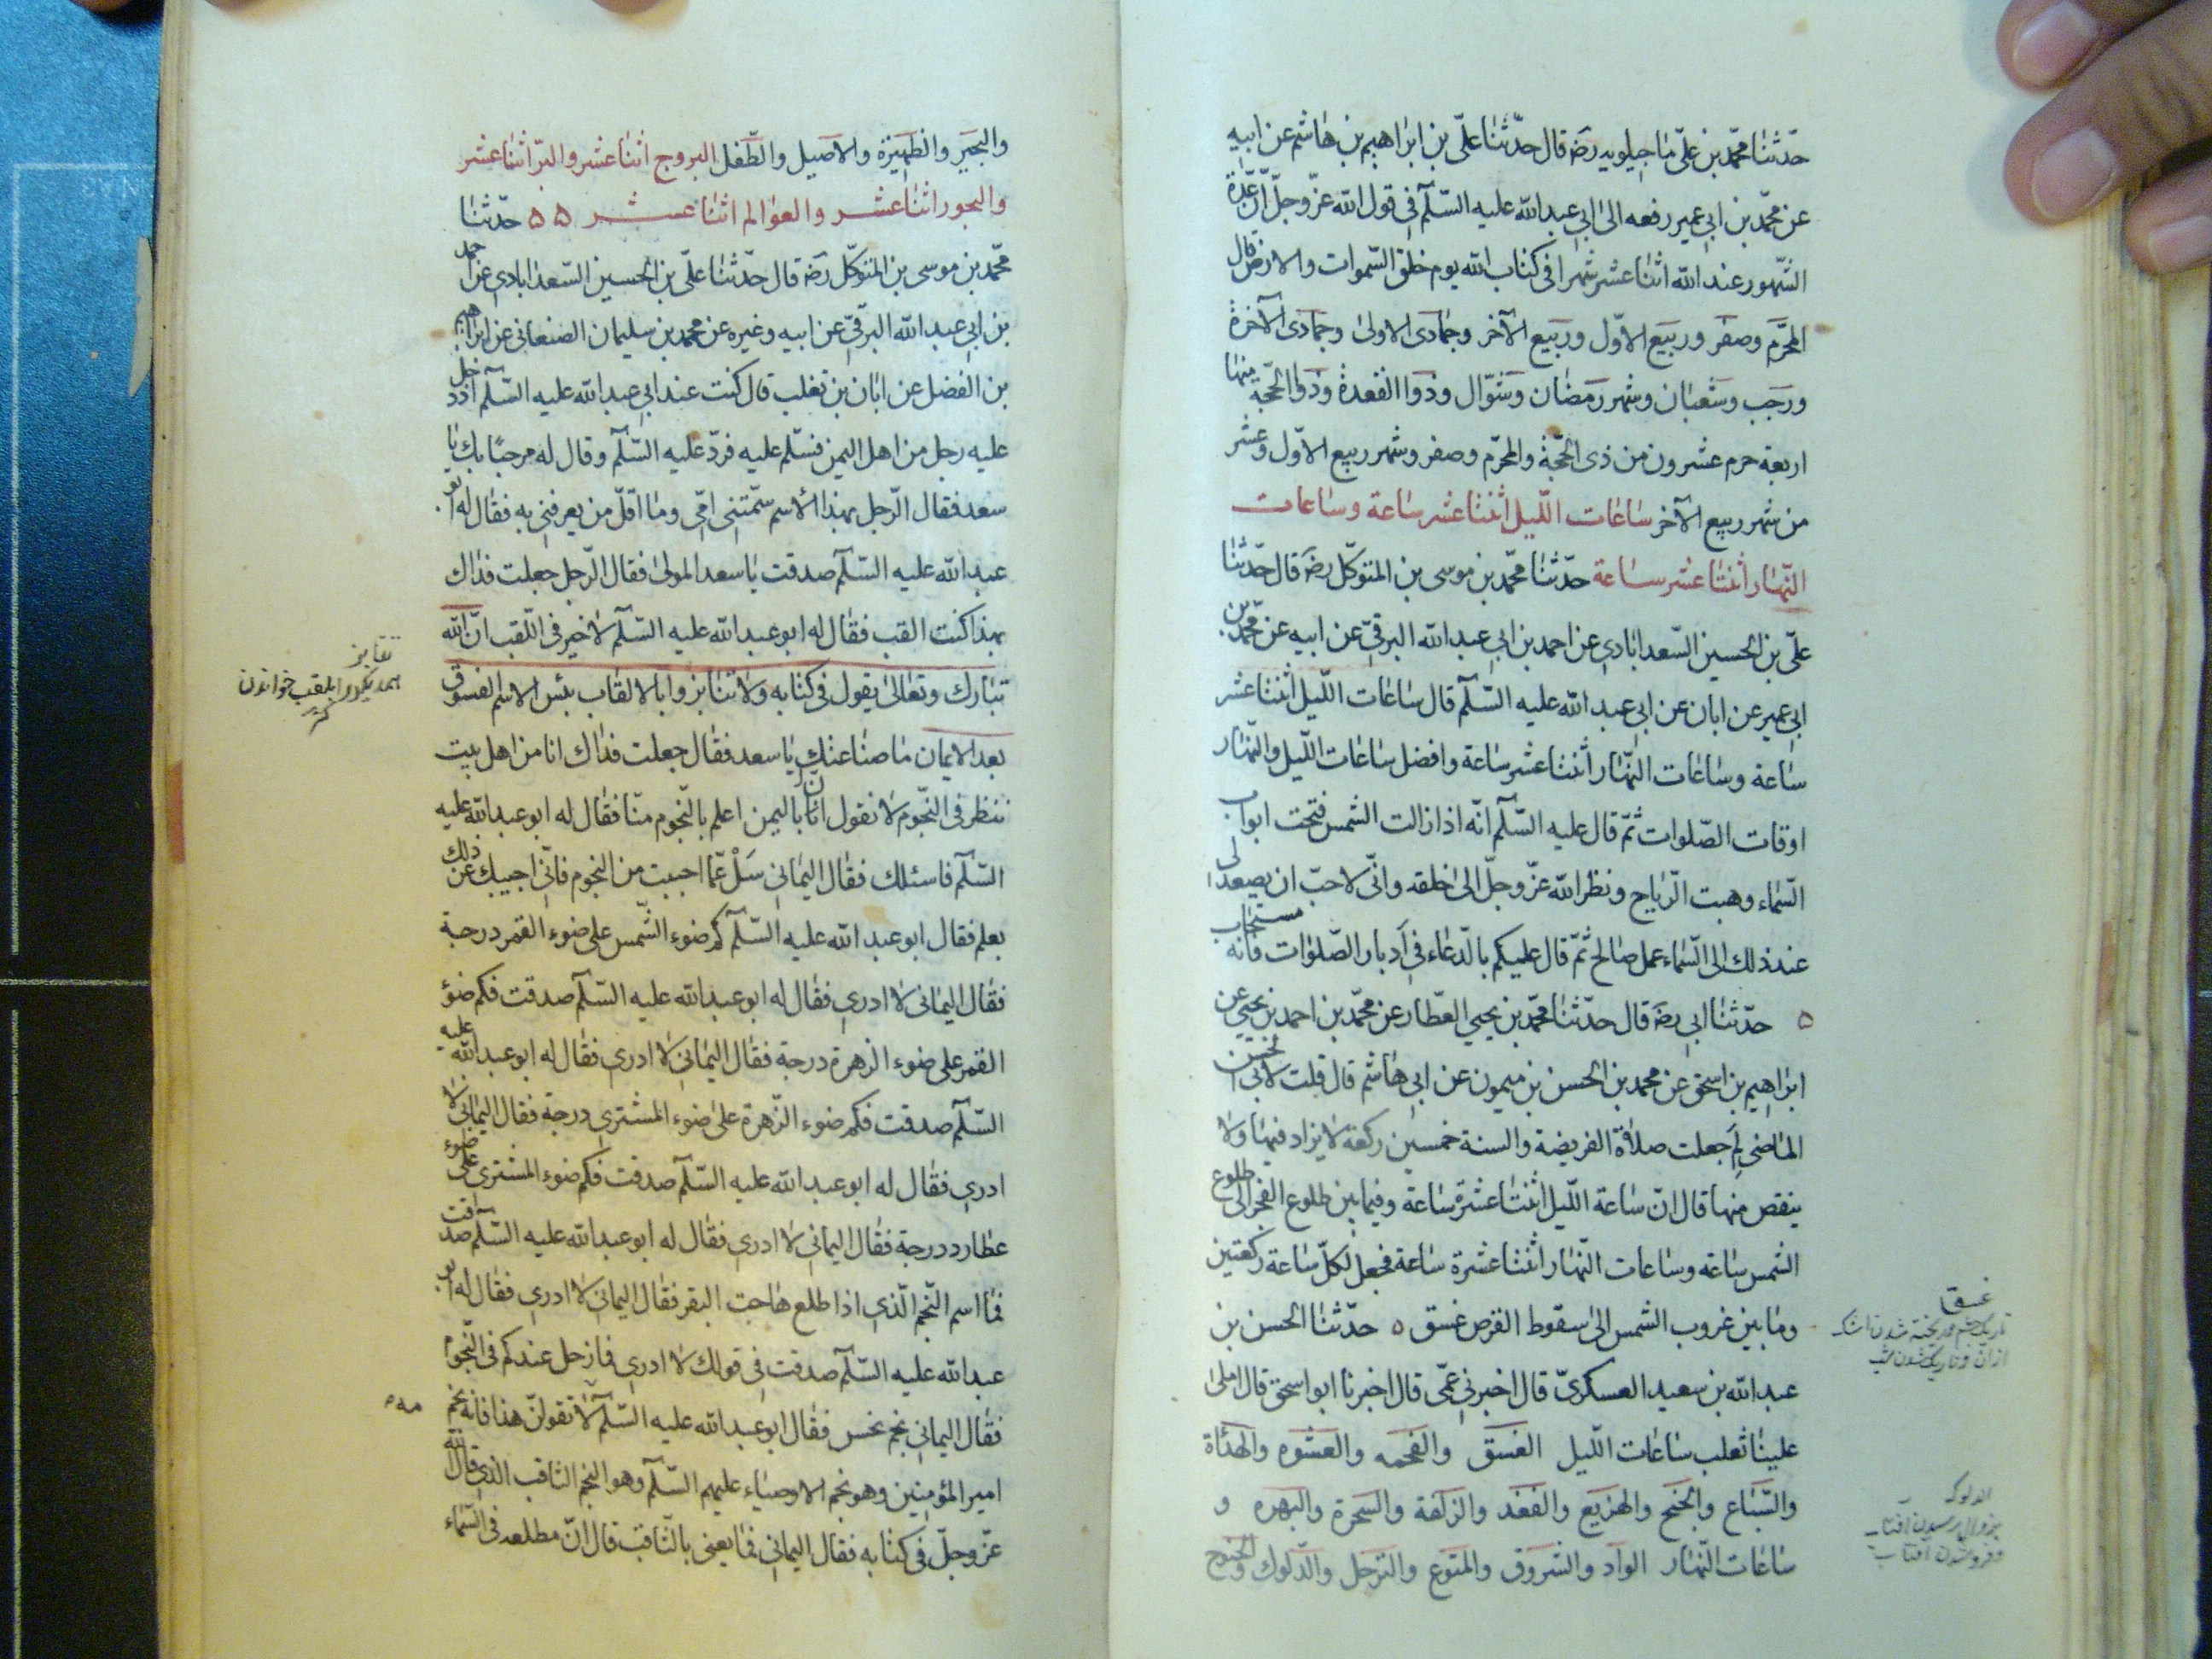 حدّثنا محمّد بن علىّ ماجيلويه رضه قال حدّثنا علىّ بن ابراهيم بن هاشم عن ابيه
عن محمّد بن ابى عمير رفعه الى ابى عبد الله عليه السّلم فى قول الله عزّ وجلّ انّ عدّة
الشّهور عند الله اثنا عشر شهرا فى كتاب الله يوم خلق السّموات والارض قال
المحرّم وصفر وربيع الاوّل وربيع الآخر وجمادى الاولى وجمادى الآخرة
ورجب وشعبان وشهر رمضان وشوّال وذوا القعدة وذوا الحجّة منها
اربعة حرم عشرون من ذى الحجّة والمحرّم وصفر وشهر ربيع الاوّل وعشر
من شهر ربيع الآخر ساعات اللّيل اثنتا عشر ساعة وساعات
النّهار اثنتا عشر ساعة حدّثنا محمّد بن موسى بن المتوكّل رضه قال حدّثنا
علىّ بن الحسين السّعدابادى عن احمد بن ابى عبد الله البرقىّ عن ابيه عن محمّد بن
ابى عمير عن ابان عن ابى عبد الله عليه السّلم قال ساعات اللّيل اثنتا عشر
ساعة وساعات النّهار اثنتا عشر ساعة وافضل ساعات اللّيل والنّهار
اوقات الصّلوات ثمّ قال عليه السّلم انّه اذا زالت الشّمس فتحت ابواب
السّماء وهبت الرّياح ونظر الله عزّ وجلّ الى خلقه وانّى لاحبّ ان يصعد لى
عند ذلك الى السّماء عمل صالح ثمّ قال عليكم بالدّعاء فى ادبار الصّلوات فانه مستجاب
٥ حدّثنا ابى رضه قال حدّثنا محمّد بن يحيى العطّار عن محمّد بن احمد بن يحيى عن
ابراهيم بن اسحق عن محمد بن الحسن بن ميمون عن ابى هاشم قال قلت لابى الحسن
الماضى لم جعلت صلاة الفريضة والسنة خمسين ركعة لا يزاد فيها ولا
ينقص منها قال انّ ساعة اللّيل اثنتا عشرة ساعة وفيما بين طلوع الفجر الى طلوع
الشمس ساعة وساعات النّهار اثنتا عشرة ساعة فجعل لكلّ ساعة ركعتين
وما بين غروب الشمس الى سقوط القرص غسق ٥ حدّثنا الحسن بن
عبد الله بن سعيد العسكرىّ قال اخبرنى عمّى قال اخبرنا ابو اسحق قال املى
علينا ثعلب ساعات اللّيل الغسق والفحمه والعشوه والهدأة
والسّباع والجنح والهزيع والفغد والزلفة والسحرة والبهره و
ساعات النّهار الراد والشروق والمتوع والترجل والدّلوك والجنوح
غسق
الدلوك
والهجير والظهيرة والاصيل والطّفل البروج اثنا عشر والبرّ اثنا عشر
والبحور اثنا عشر والعوالم اثنا عشر ٥٥ حدّثنا
محمّد بن موسى بن المتوكّل رضه قال حدّثنا علىّ بن الحسين السّعدابادى عن احمد
بن ابى عبد الله البرقىّ عن ابيه وغيره عن محمد بن سليمان الصنعانى عن ابراهيم
بن الفضل عن ابان بن تغلب قال كنت عند ابى عبد الله عليه السّلم اذ دخل
عليه رجل من اهل اليمن فسّلم عليه فردّ عليه السّلم وقال له مرحبًا بك يا
سعد فقال الرّجل بهذا الاسم سمّتنى امّى وما اقلّ من يعرفنى به فقال له ابو
عبد الله عليه السّلم صدقت يا سعد المولى فقال الرّجل جعلت فداك
بهذا كنت القب فقال له ابو عبد الله عليه السّلم لا خير فى اللّقب انّ الله
تبارك وتعالى يقول فى كتابه ولا تنابزوا بالالقاب بئس الاسم الفسوق
بعد الايمان ما صناعتك يا سعد فقال جعلت فداك انا من اهل بيت
ننظر فى النّجوم لا نقول انّ باليمن اعلم بالنّجوم منّا فقال له ابو عبد الله عليه
السّلم فاسئلك فقال اليمانى سَلْ عمّا احببت من النجوم فانّى اجيبك عن ذلك
بعلم فقال ابو عبد الله عليه السّلم كم ضوء الشّمس على ضوء القمر درجة
فقال اليمانى لا ادرى فقال له ابو عبد الله عليه السّلم صدقت فكم ضوء
القمر على ضوء الزهرة درجة فقال اليمانى لا ادرى فقال له ابو عبد الله عليه
السّلم صدقت فكم ضوء الزّهرة على ضوء المشترى درجة فقال اليمانى لا
ادرى فقال له ابو عبد الله عليه السّلم صدقت فكم ضوء المشترى على ضوء
عطارد درجة فقال اليمانى لا ادرى فقال له ابو عبد الله عليه السّلم صدقت
فما اسم النّجم الّذى اذا طلع هاجت البقر فقال اليمانى لا ادرى فقال له ابو
عبد الله عليه السّلم صدقت فى قولك لا ادرى فما زحل عندكم فى النّجوم
فقال اليمانى نجم نحس فقال ابو عبد الله عليه السّلم لا تقولنّ هذا فانه نجم
امير المؤمنين وهو نجم الاوصياء عليهم السّلم وهو النجم الثاقب الذى قال الله
عزّ وجلّ فى كتابه فقال اليمانى فما يعنى بالثّاقب قال انّ مطلعه فى السّماء
همديكر را بلقب خواندن